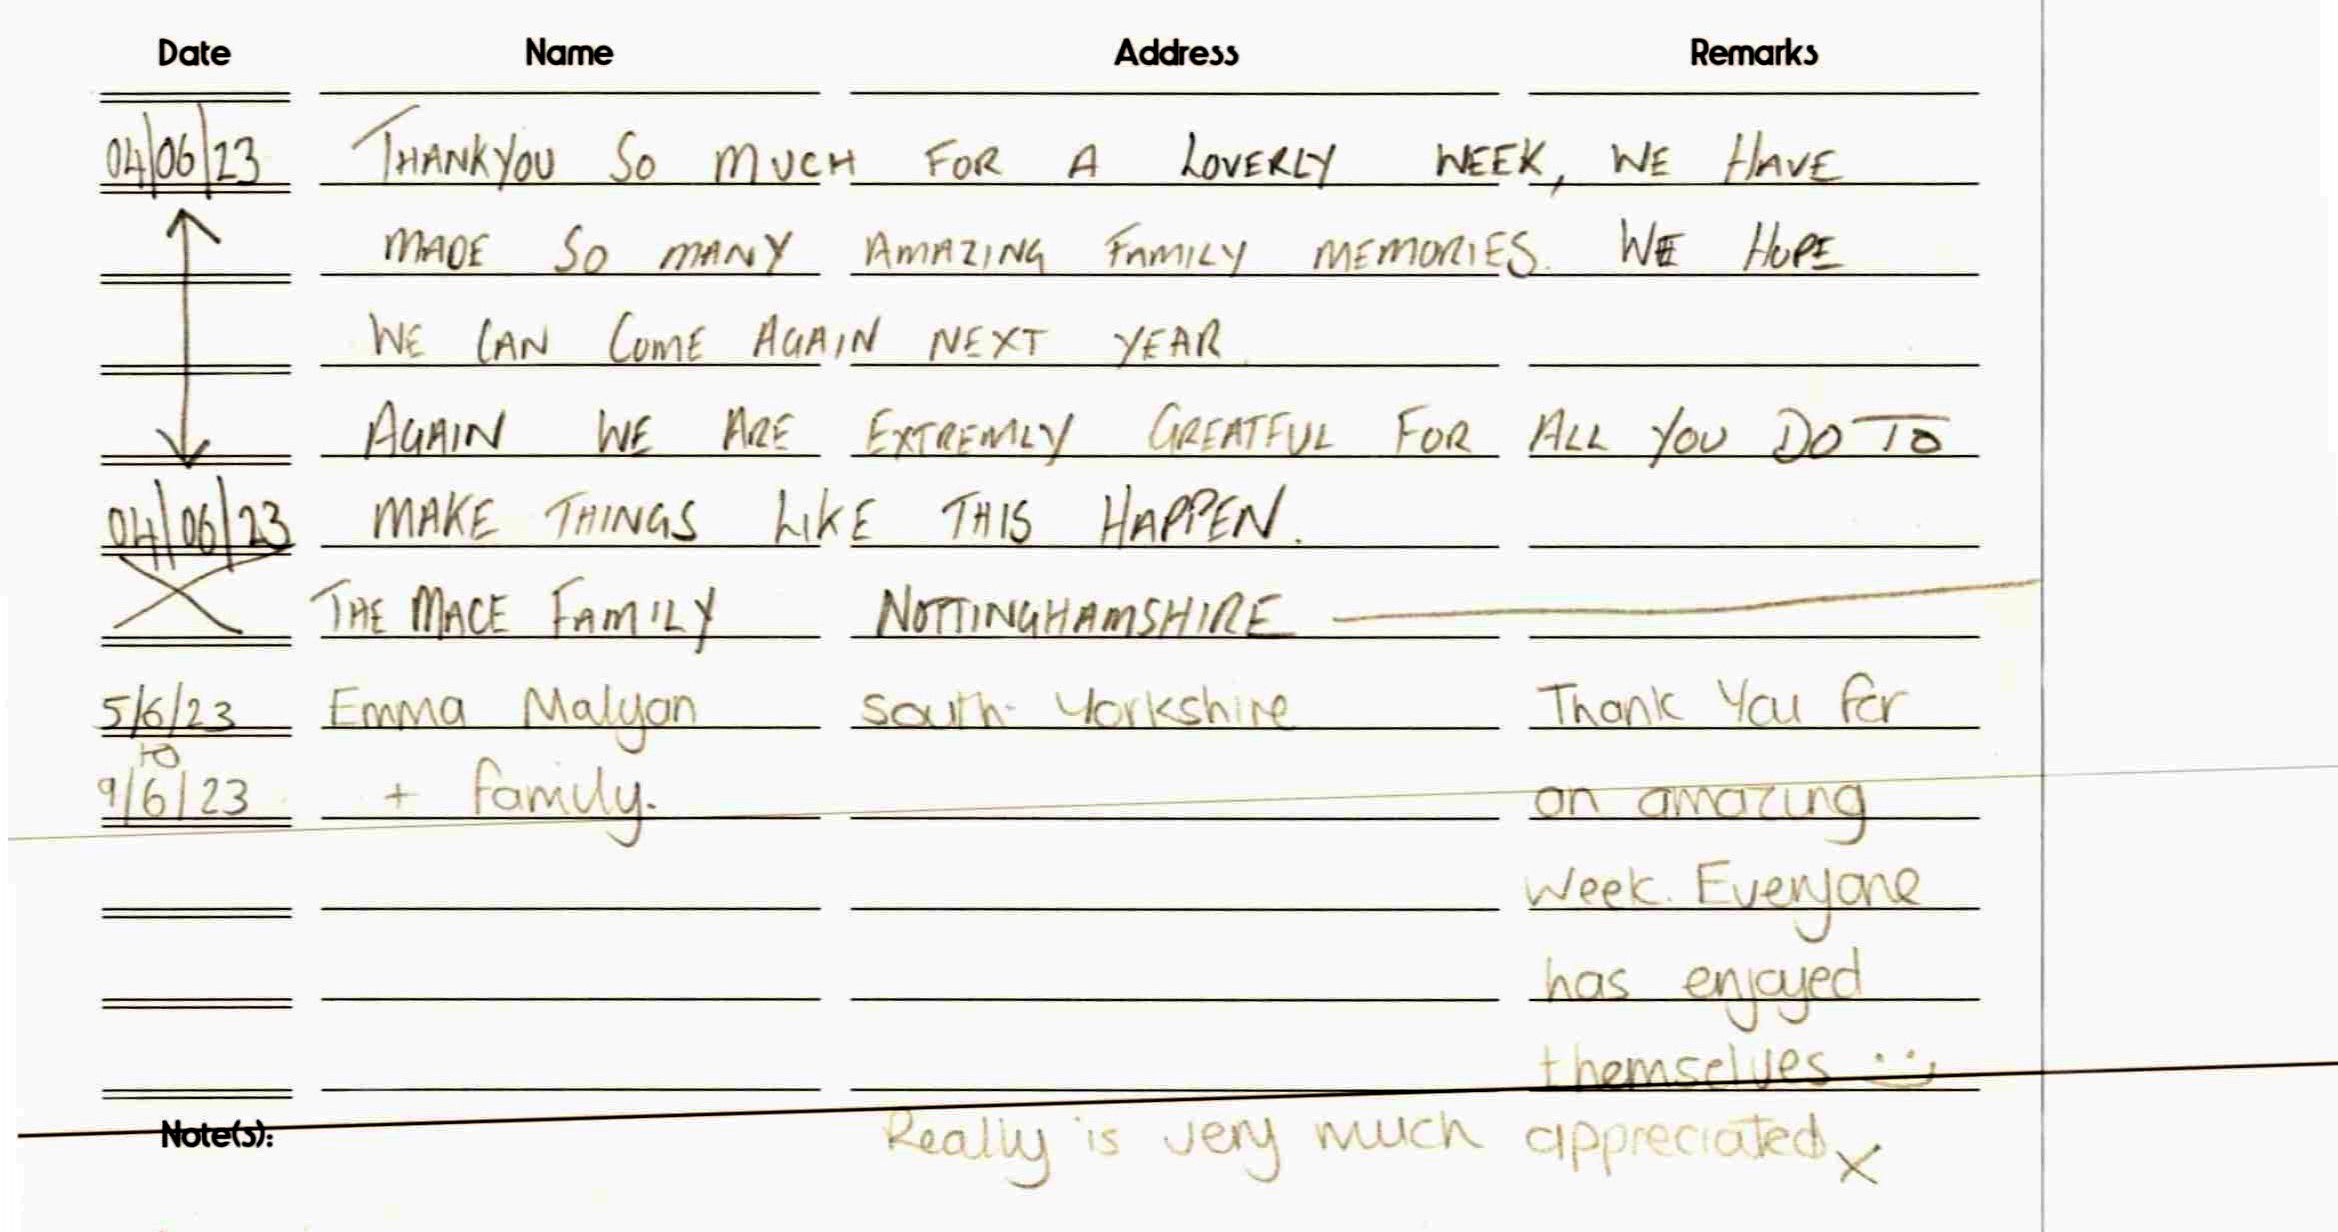 Date Name Address Remarks
04/06/23 THANKYOU SO MUCH FOR A LOVERLY WEEK, WE HAVE
MADE SO MANY AMAZING FAMILY MEMORIES. WE HOPE
WE CAN COME AGAIN NEXT YEAR
AGAIN WE ARE EXTREMLY GREATFUL FOR ALL YOU DO TO
04/06/23 MAKE THINGS LIKE THIS HAPPEN.
THE MACE FAMILY NOTTINGHAMSHIRE
5/6/23 Emma Malyan South Yorkshire Thank You for
to
9/6/23 + family. an amazing
week. Everyone
has enjoyed
themselves :)
Note(s): Really is very much appreciated x